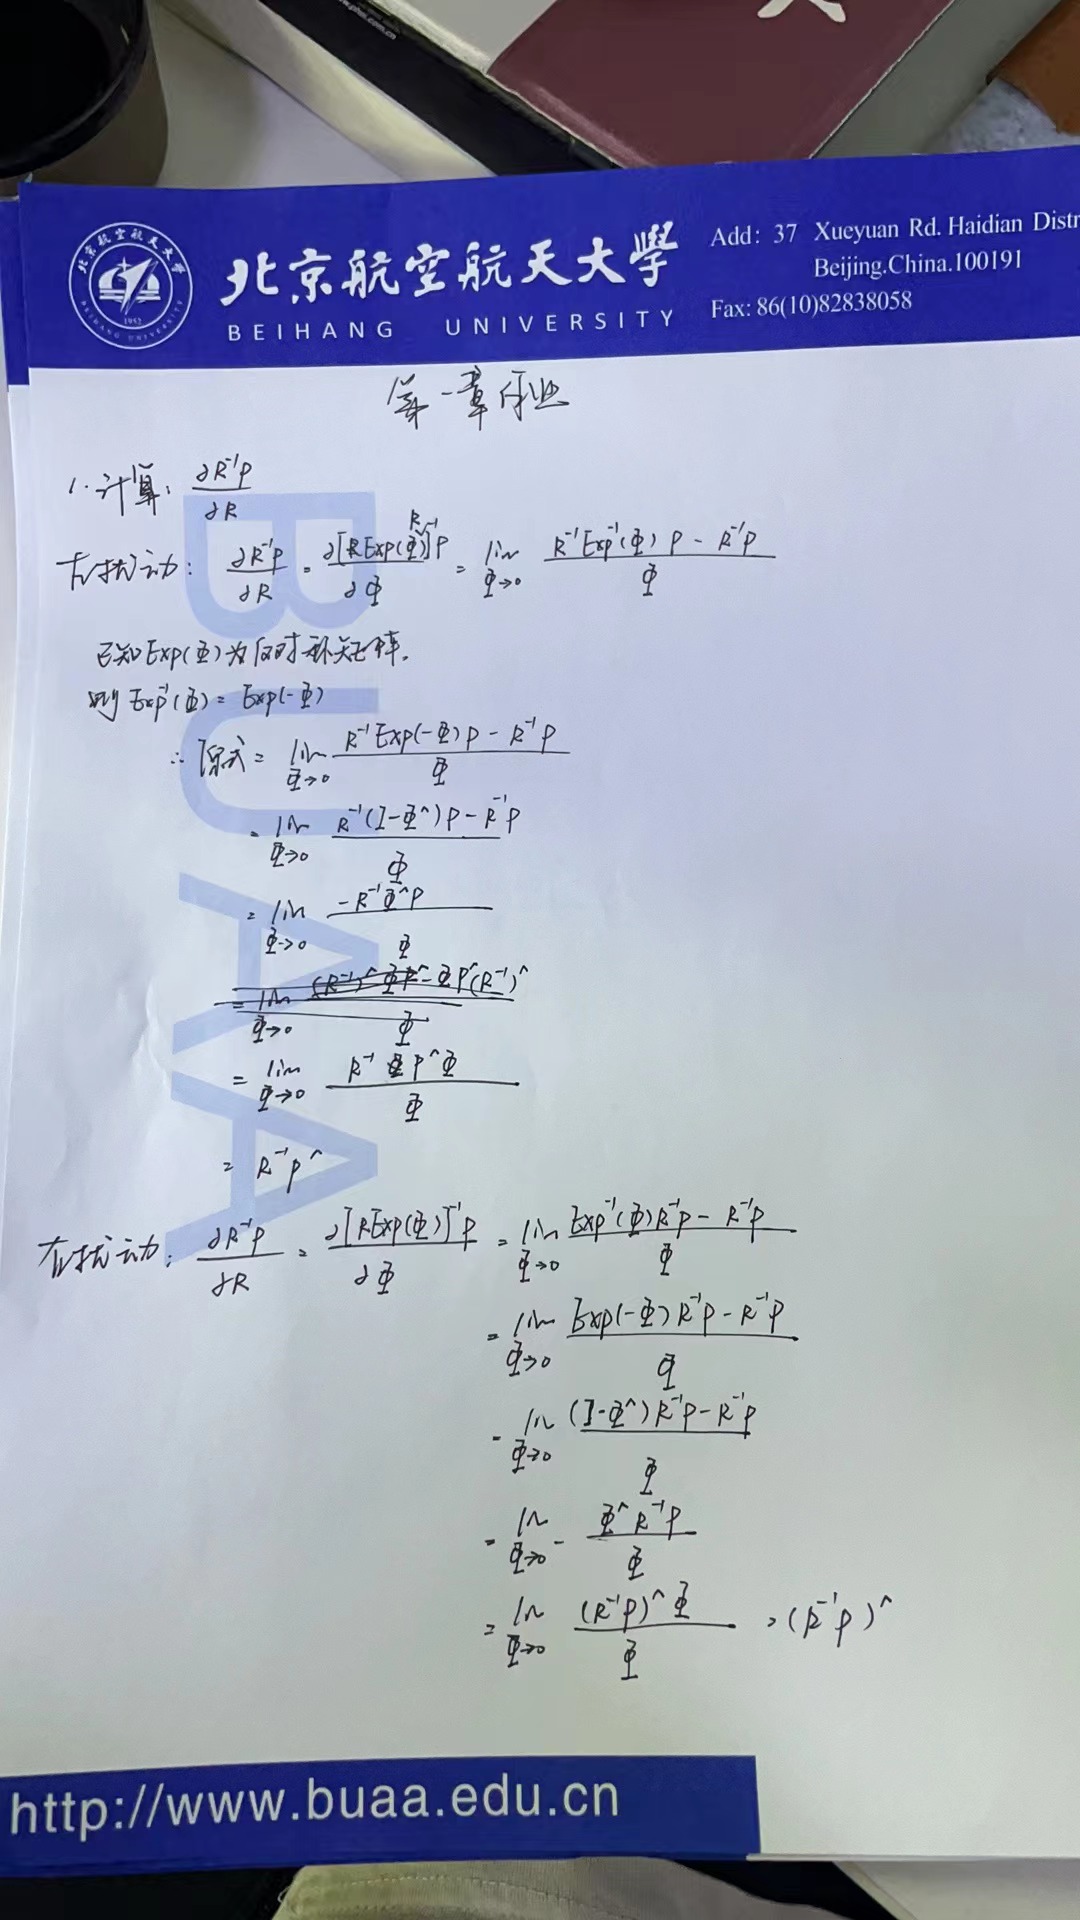 www.phei.com.cn
北京航空航天大學
BEIHANG UNIVERSITY
Add: 37 Xueyuan Rd. Haidian Distr
Beijing.China.100191
Fax: 86(10)82838058
第一章作业
1. 计算: ∂R⁻¹P / ∂R
左扰动: ∂R⁻¹P / ∂R = ∂[R Exp(Φ) R]⁻¹P / ∂Φ = lim Φ→0 (R⁻¹Exp⁻¹(Φ) P - R⁻¹P) / Φ
已知Exp(Φ)为反对称矩阵.
则 Exp⁻¹(Φ) = Exp(-Φ)
∴ 原式 = lim Φ→0 (R⁻¹ Exp(-Φ) P - R⁻¹ P) / Φ
= lim Φ→0 (R⁻¹(I-Φ^) P - R⁻¹P) / Φ
= lim Φ→0 (-R⁻¹Φ^P) / Φ
= lim Φ→0 (R⁻¹ P^Φ) / Φ
= R⁻¹P^
右扰动: ∂R⁻¹P / ∂R = ∂[R Exp(Φ)]⁻¹P / ∂Φ = lim Φ→0 (Exp⁻¹(Φ)R⁻¹P - R⁻¹P) / Φ
= lim Φ→0 (Exp(-Φ) R⁻¹P - R⁻¹P) / Φ
= lim Φ→0 ((I-Φ^) R⁻¹P - R⁻¹P) / Φ
= lim Φ→0 - (Φ^ R⁻¹P) / Φ
= lim Φ→0 ((R⁻¹P)^ Φ) / Φ = (R⁻¹P)^
BUAA
http://www.buaa.edu.cn